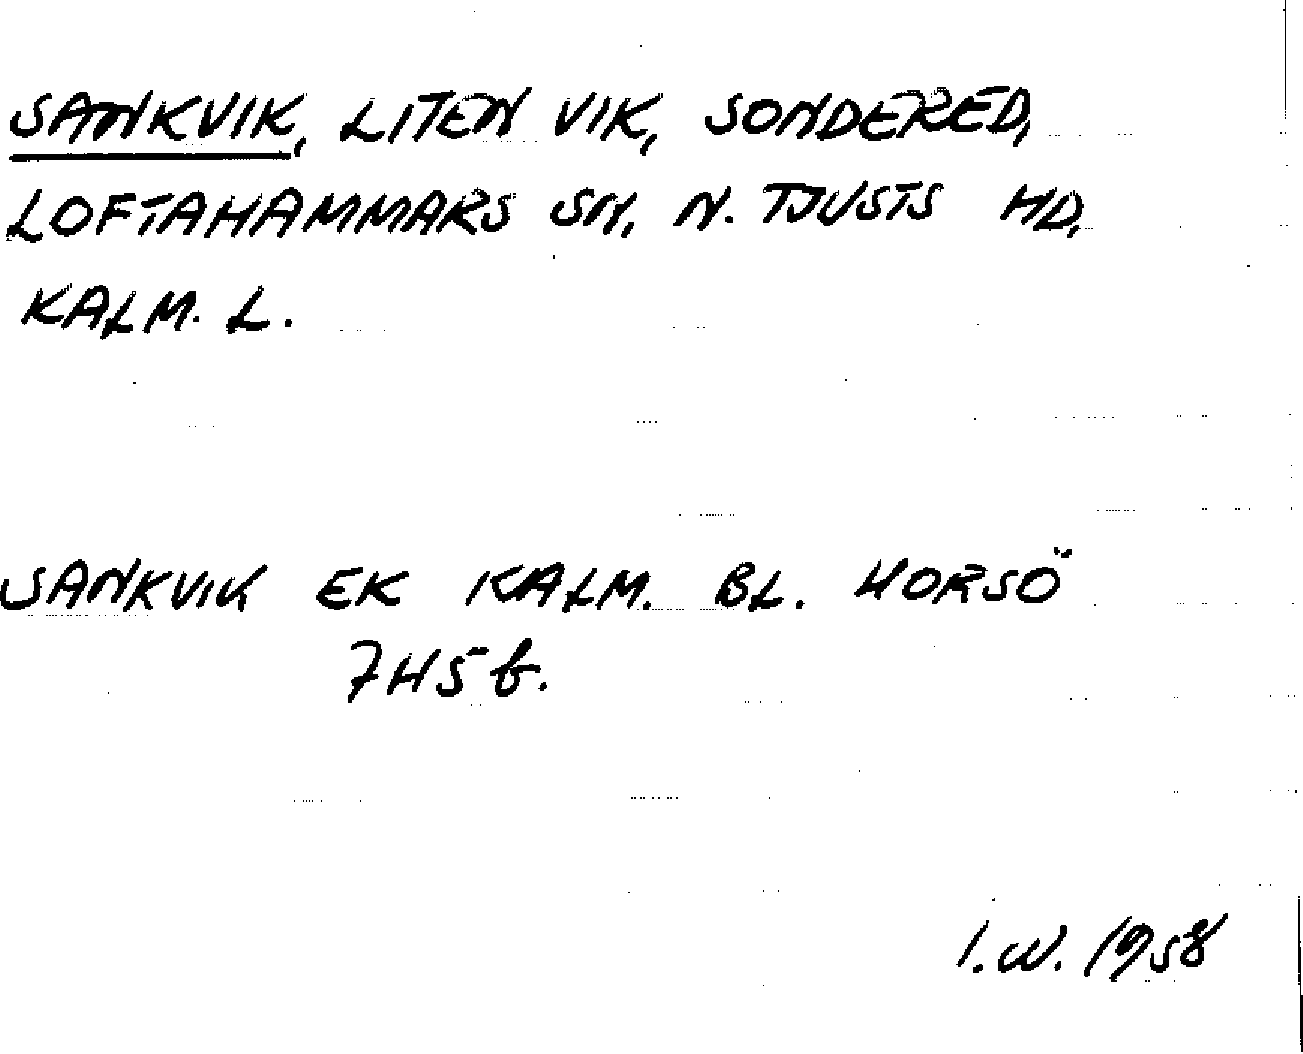 SANKVIK, LITEN VIK, SONDERED,
LOFTAHAMMARS SN, N. TJUSTS HD,
KALM. L.
SANKVIK EK KALM. BL. HORSÖ
7H5b.
I.W. 1958